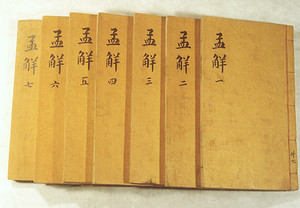 孟解 一
孟解 二
孟解 三
孟解 四
孟解 五
孟解 六
孟解 七